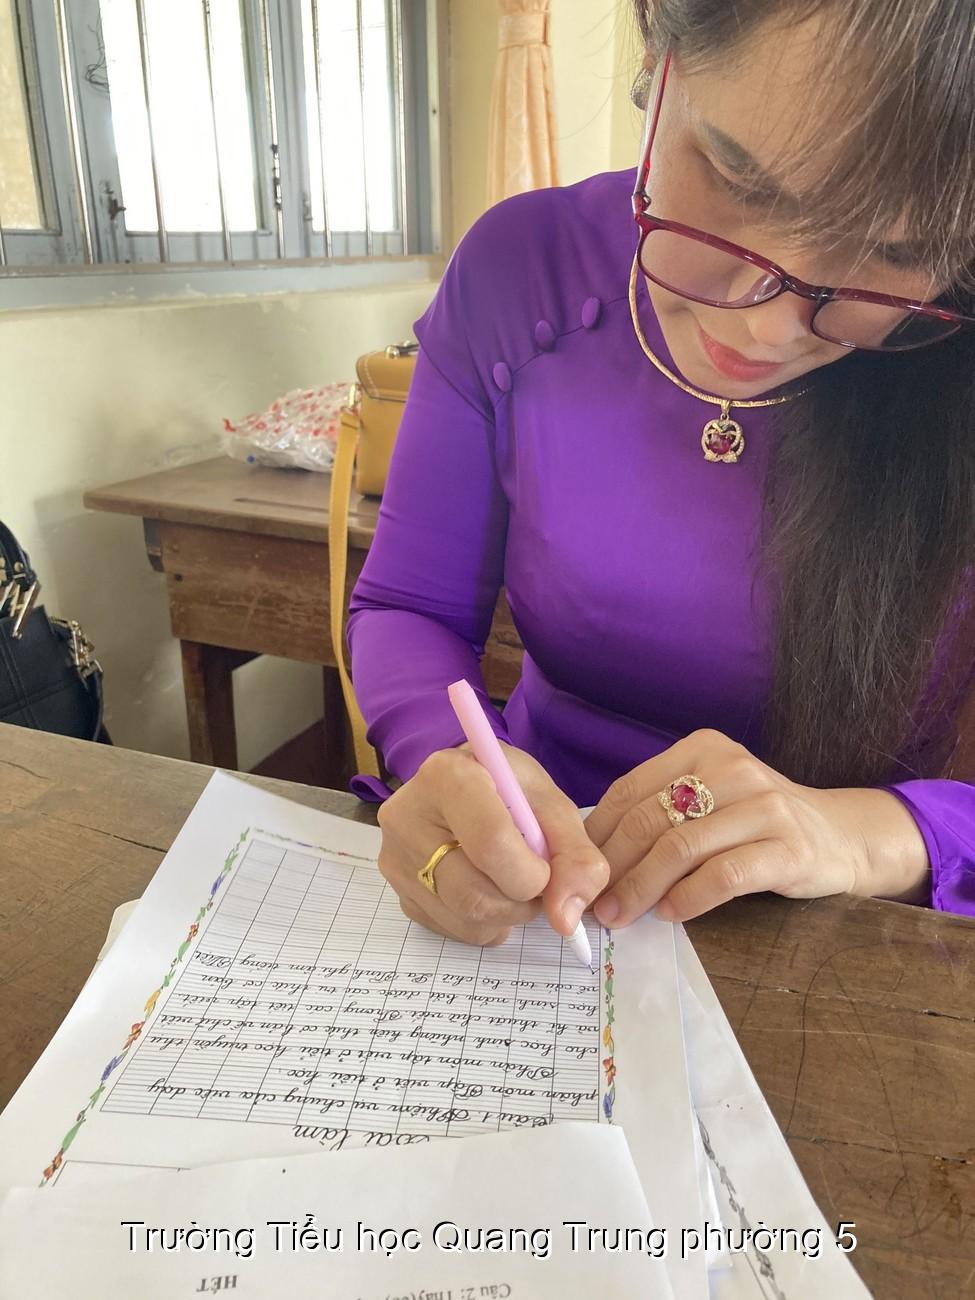 Bài làm
Câu 1. Nhiệm vụ chung của việc dạy
phân môn Tập viết ở tiểu học.
Phân môn tập viết ở tiểu học truyền thụ
cho học sinh những kiến thức cơ bản về chữ viết
và kĩ thuật chữ viết. Trong các tiết tập viết
học sinh nắm bắt được các tri thức cơ bản
về cấu tạo bộ chữ La Tinh ghi âm tiếng Việt
Câu 2: Thầy(cô)
HẾT
Trường Tiểu học Quang Trung phường 5